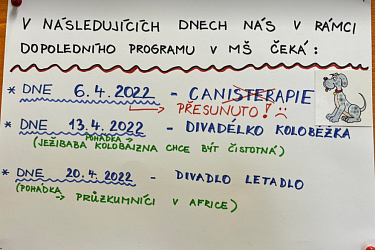 V NÁSLEDUJÍCÍCH DNECH NÁS V RÁMCI
DOPOLEDNÍHO PROGRAMU V MŠ ČEKÁ:
* DNE 6.4.2022 - CANISTERAPIE
→ PŘESUNUTO! :(
* DNE 13.4.2022 - DIVADÉLKO KOLOBĚŽKA
POHÁDKA
(JEŽIBABA KOLOBAJZNA CHCE BÝT ČISTOTNÁ)
* DNE 20.4.2022 - DIVADLO LETADLO
(POHÁDKA → PRŮZKUMNÍCI V AFRICE)